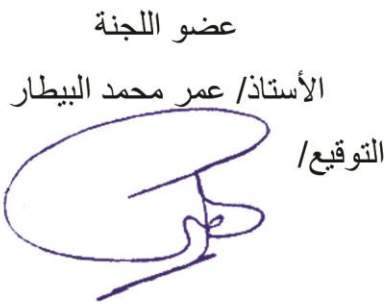 عضو اللجنة
الأستاذ/ عمر محمد البيطار
التوقيع/